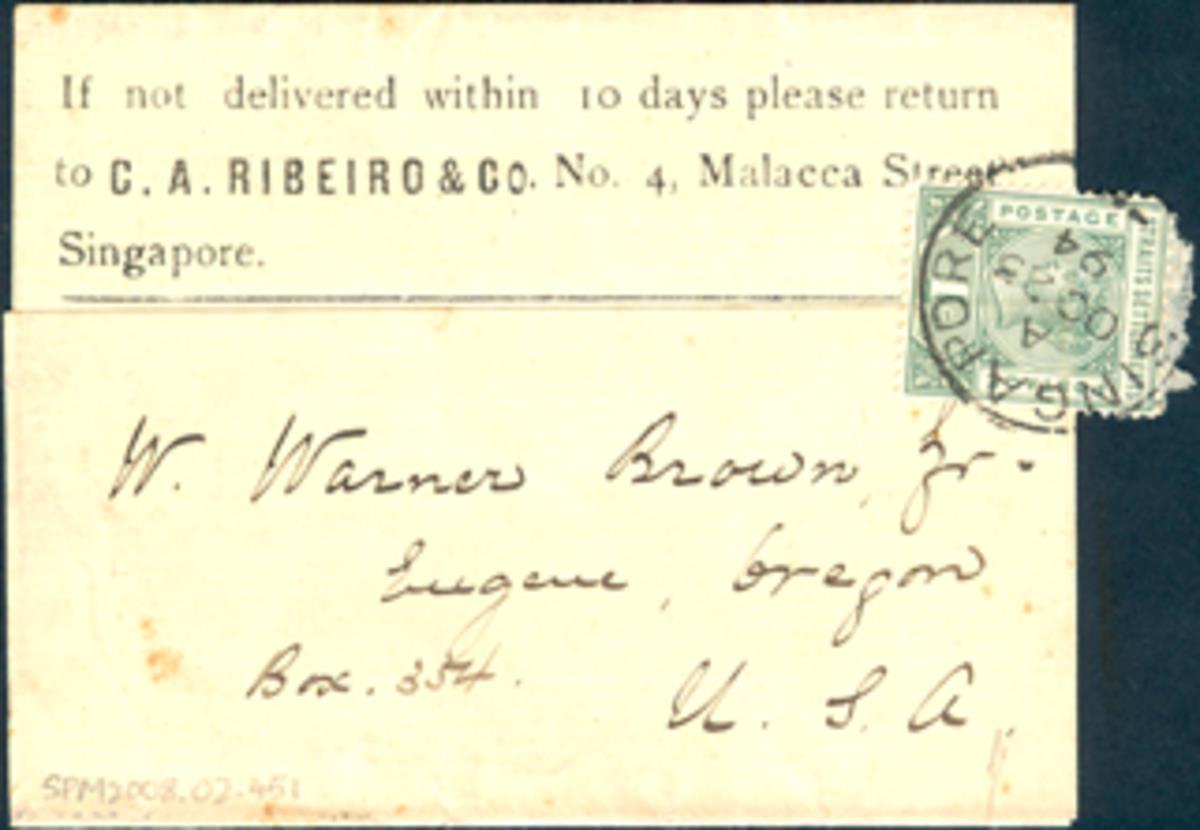 If not delivered within 10 days please return
to C. A. RIBEIRO & CO. No. 4, Malacca Street
Singapore.
POSTAGE
STRAITS SETTLE
SINGAPORE
A
OC
94
W. Warner Brown, Jr.
Eugene, Oregon
Box. 354.
U. S. A.
SPM2008.02.451